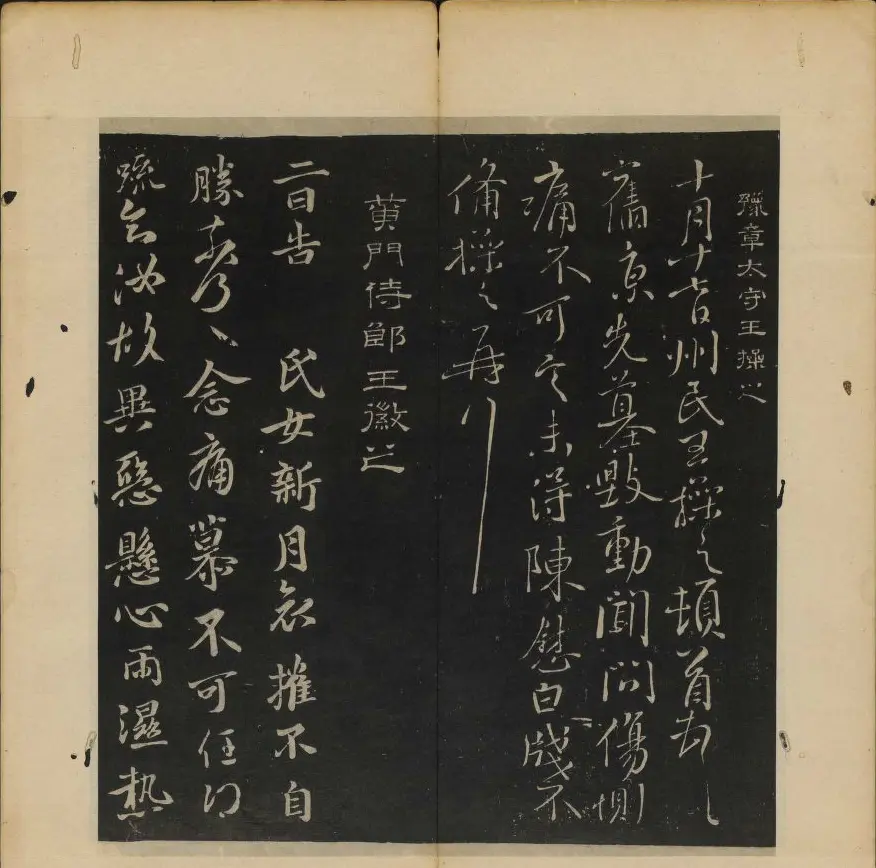 豫章太守王操之
十月十七日州民王操之頓首
舊京先墓毀動聞問傷惻
痛不可言未得陳慰白牋不
備操之再拜
黃門侍郎王徽之
二日告 氏女新月哀摧不自
勝奈何〻〻念痛慕不可任得
疏知汝故異惡懸心雨濕熱